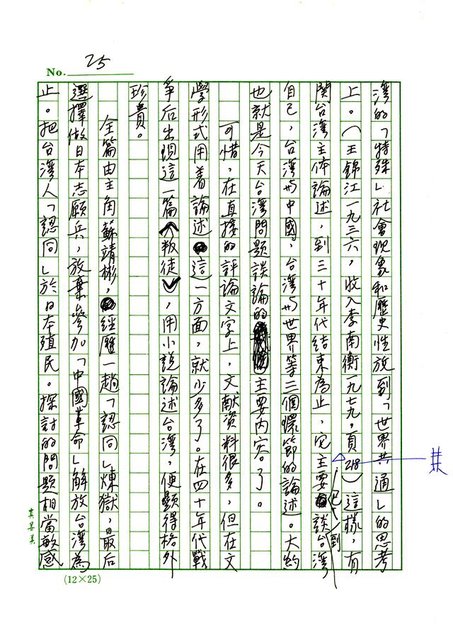 No. 25
灣的「特殊」社會現象和歷史性放到「世界共通」的思考
共
上。（王錦江一九三六，收入李南衡一九七九，頁218）這樣，有
已
到
関台灣主体論述，到三十年代結束為止，它主要談台灣
自己，台灣与中國，台灣与世界等三個環節的論述。大約
也就是今天台灣問題談論的主要內容了。
可惜，在直接的評論文字上，文献資料很多，但在文
學形式用着論述這一方面，就少多了。在四十年代戰
爭后出現這一篇〈叛徒〉，用小説論述台灣，便顯得格外
珍貴。
全篇由主角蘇靖彬，經歷一趟「認同」煉獄，最后
選擇做日本志願兵，放棄參加「中國革命」解放台灣為
止。把台灣人「認同」於日本殖民。探討的問題相當敏感
(12×25)